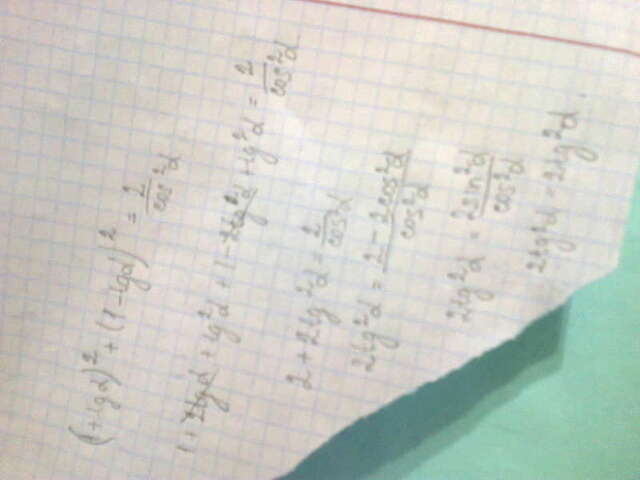 (1+tgα)² + (1-tgα)² = 2/cos²α
1+2tgα+tg²α+1-2tg²α+tg²α = 2/cos²α
2+2tg²α = 2/cos²α
2tg²α = 2-2cos²α/cos²α
2tg²α = 2sin²α/cos²α
2tg²α = 2tg²α.